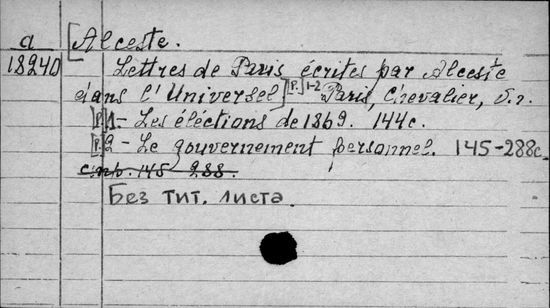 a [Alceste.
18240 Lettres de Paris écrites par Alceste
dans l'Universel] [P.] 1-2 Paris, Chevalier, s.a.
[P.] 1 - Les éléctions de 1869. 144c.
[P.] 2 - Le gouvernement personnel. 145-288c.
стр. 145 288.
Без тит. листа.